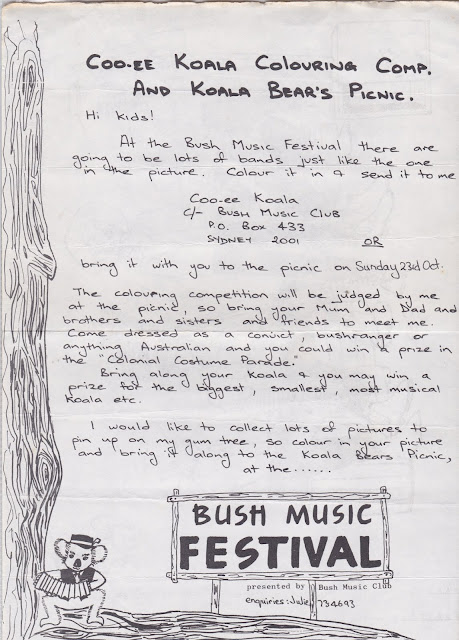 COO-EE KOALA COLOURING COMP.
AND KOALA BEAR'S PICNIC.
Hi kids!
At the Bush Music Festival there are
going to be lots of bands just like the one
in the picture. Colour it in & send it to me
COO-EE KOALA
C/- BUSH MUSIC CLUB
P.O. BOX 433
SYDNEY 2001
OR
bring it with you to the picnic on Sunday 23rd Oct.
The colouring competition will be judged by me
at the picnic, so bring your Mum and Dad and
brothers and sisters and friends to meet me.
Come dressed as a convict, bushranger or
anything Australian and you could win a prize in
the "Colonial Costume Parade."
Bring along your Koala & you may win a
prize for the biggest, smallest, most musical
Koala etc.
I would like to collect lots of pictures to
pin up on my gum tree, so colour in your picture
and bring it along to the Koala Bears Picnic,
at the......
BUSH MUSIC
FESTIVAL
presented by Bush Music Club
enquiries: Julie, 734693